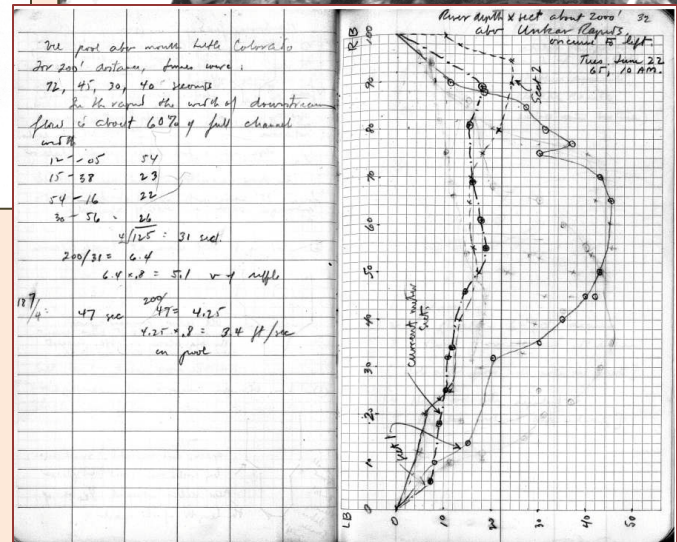 pool abv mouth Little Colorado
For 200' distance, times were:
72, 45, 30, 40 seconds
In the rapid the width of downstream
flow is about 60% of full channel
width
12 - 05 54
15 - 38 23
54 - 16 22
30 - 56 26
4 √125 = 31 sec.
200/31 = 6.4
6.4 x .8 = 5.1 v of riffle
187/4 = 47 sec 200/47 = 4.25
4.25 x .8 = 3.4 ft/sec
in pool
River depth x sect about 2000' 32
abv Unkar Rapids,
on curve to left.
Tues, June 22
65, 10 AM.
RB
100
90
80
70
60
50
40
30
20
0
LB
Sect 2
current meter
Sect 1
0 10 30 40 50